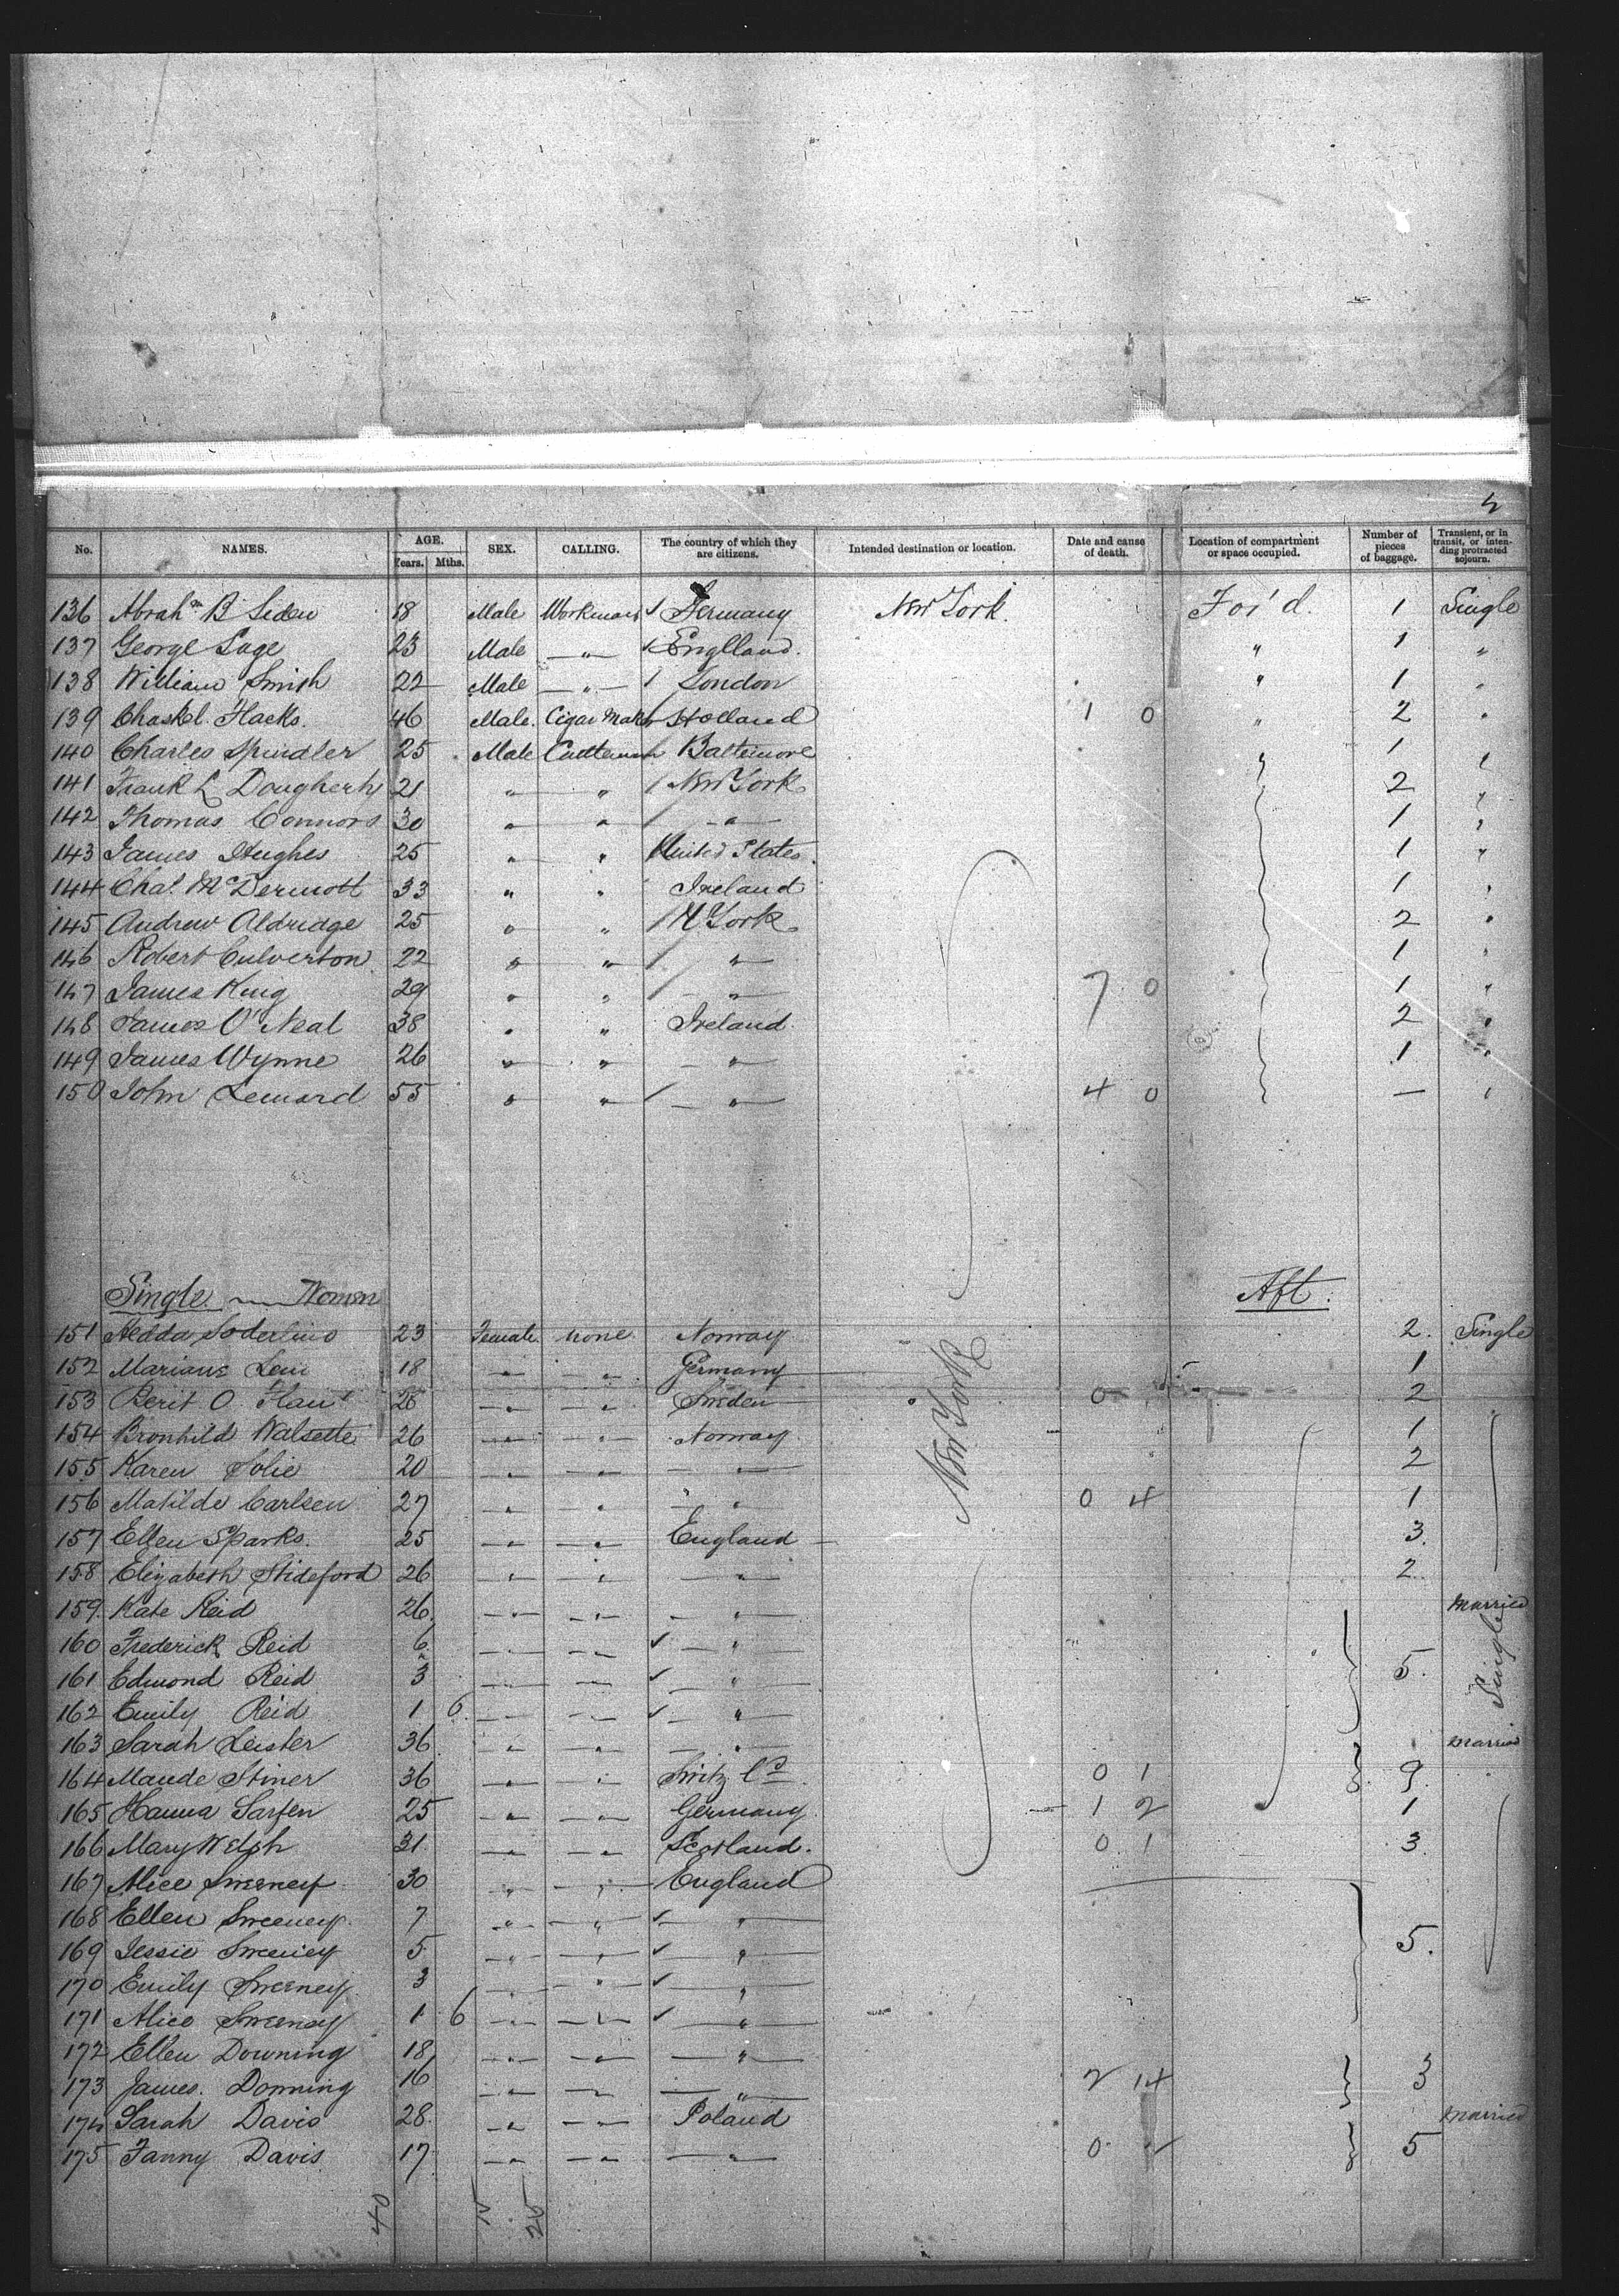 5
No. NAMES. AGE. Years. Mths. SEX. CALLING. The country of which they are citizens. Intended destination or location. Date and cause of death. Location of compartment or space occupied. Number of pieces of baggage. Transient, or in transit, or intending protracted sojourn.
136 Abrahm B Siden 18 Male Workman Germany New York. For'd. 1 Single
137 George Sage 23 Male " Englland. " 1 "
138 William Smith 22 Male " London " 1 "
139 Chaskel Hacks. 46 Male. Cigar Maker Holland 1 0 " 2 "
140 Charles Spindler 25 Male Cattleman Baltimore " 1 "
141 Frank L Dougherty 21 " " New York 2 "
142 Thomas Connors 30 " " " 1 "
143 James Hughes 25 " " United States. 1 "
144 Chas. McDermott 33 " " Ireland 1 "
145 Andrew Aldridge 25 " " N York 2 "
146 Robert Culverton 22 " " " 1 "
147 James King 29 " " " 7 0 1 "
148 James O'Neal 38 " " Ireland 2 "
149 James Wynne 26 " " " 1 "
150 John Lenard 55 " " " 4 0 — "
Single Women Aft.
151 Hedda Soderlino 23 Female none Norway 2. Single
152 Mariane Levi 18 " " Germany 1
153 Berit O. 26 " " Sweden 0 2
154 Bronhild Walsette 26 " " Norway New York 1
155 Karen Solie 20 " " " 2
156 Matilde Carlsen 27 " " " 0 4 1
157 Ellen Sparks. 25 " " England 3.
158 Elizabeth Stideford 26 " " " 2
159. Kate Reid 26. " " " Married
160 Frederick Reid 6 " " " Single
161 Edmond Reid 3 " " " 5.
162 Emily Reid 1 6 " " "
163 Sarah Leister 36 " " " Married
164 Maude Stiner 36 " " Switz Ld 0 1 9.
165 Hanna Sarfen 25 " " Germany. 1 2 1
166 Mary Welsh 31. " " Scotland. 0 1 3.
167 Alice Sweeney 30 " " England
168 Ellen Sweeney. 7 " " "
169 Jessie Sweeney 5 " " " 5.
170 Emily Sweeney. 3 " " "
171 Alice Sweeney 1 6 " " "
172 Ellen Downing 18 " " "
173 James. Donning 16 " " " 2 14 3
174 Sarah Davis 28. " " Poland Married
175 Fanny Davis 17. " " " 0 5
40 15 25